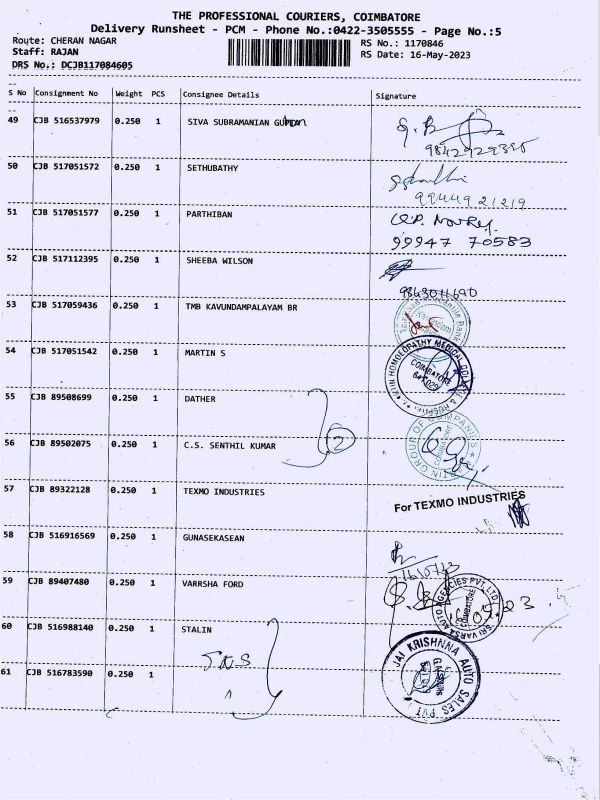 THE PROFESSIONAL COURIERS, COIMBATORE
Delivery Runsheet - PCM - Phone No.:0422-3505555 - Page No.:5
Route: CHERAN NAGAR RS No.: 1170846
Staff: RAJAN RS Date: 16-May-2023
DRS No.: DCJB117084605
S No Consignment No Weight PCS Consignee Details Signature
49 CJB 516537979 0.250 1 SIVA SUBRAMANIAN
50 CJB 517051572 0.250 1 SETHUBATHY
99449 21219
51 CJB 517051577 0.250 1 PARTHIBAN
99947 70583
52 CJB 517112395 0.250 1 SHEEBA WILSON
9843011690
53 CJB 517059436 0.250 1 TMB KAVUNDAMPALAYAM BR
54 CJB 517051542 0.250 1 MARTIN S
HOMOEOPATHY MEDICAL COIMBATORE
55 CJB 89508699 0.250 1 DATHER
56 CJB 89502075 0.250 1 C.S. SENTHIL KUMAR 2
GROUP OF COMPANIES COIMBATORE
57 CJB 89322128 0.250 1 TEXMO INDUSTRIES
For TEXMO INDUSTRIES
58 CJB 516916569 0.250 1 GUNASEKASEAN
59 CJB 89407480 0.250 1 VARRSHA FORD
SRI VARSA AUTO AGENCIES PVT. LTD. COIMBATORE
60 CJB 516988140 0.250 1 STALIN
JAI KRISHNNA AUTO SALES PVT
61 CJB 516783590 0.250 1